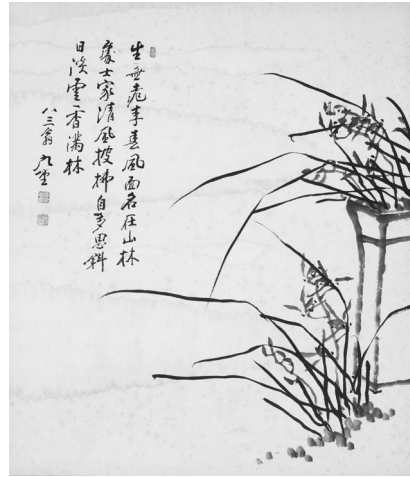 生無桃李春風面名在山林
處士家清風披拂自多思斜
日淡雲香滿林
八三翁